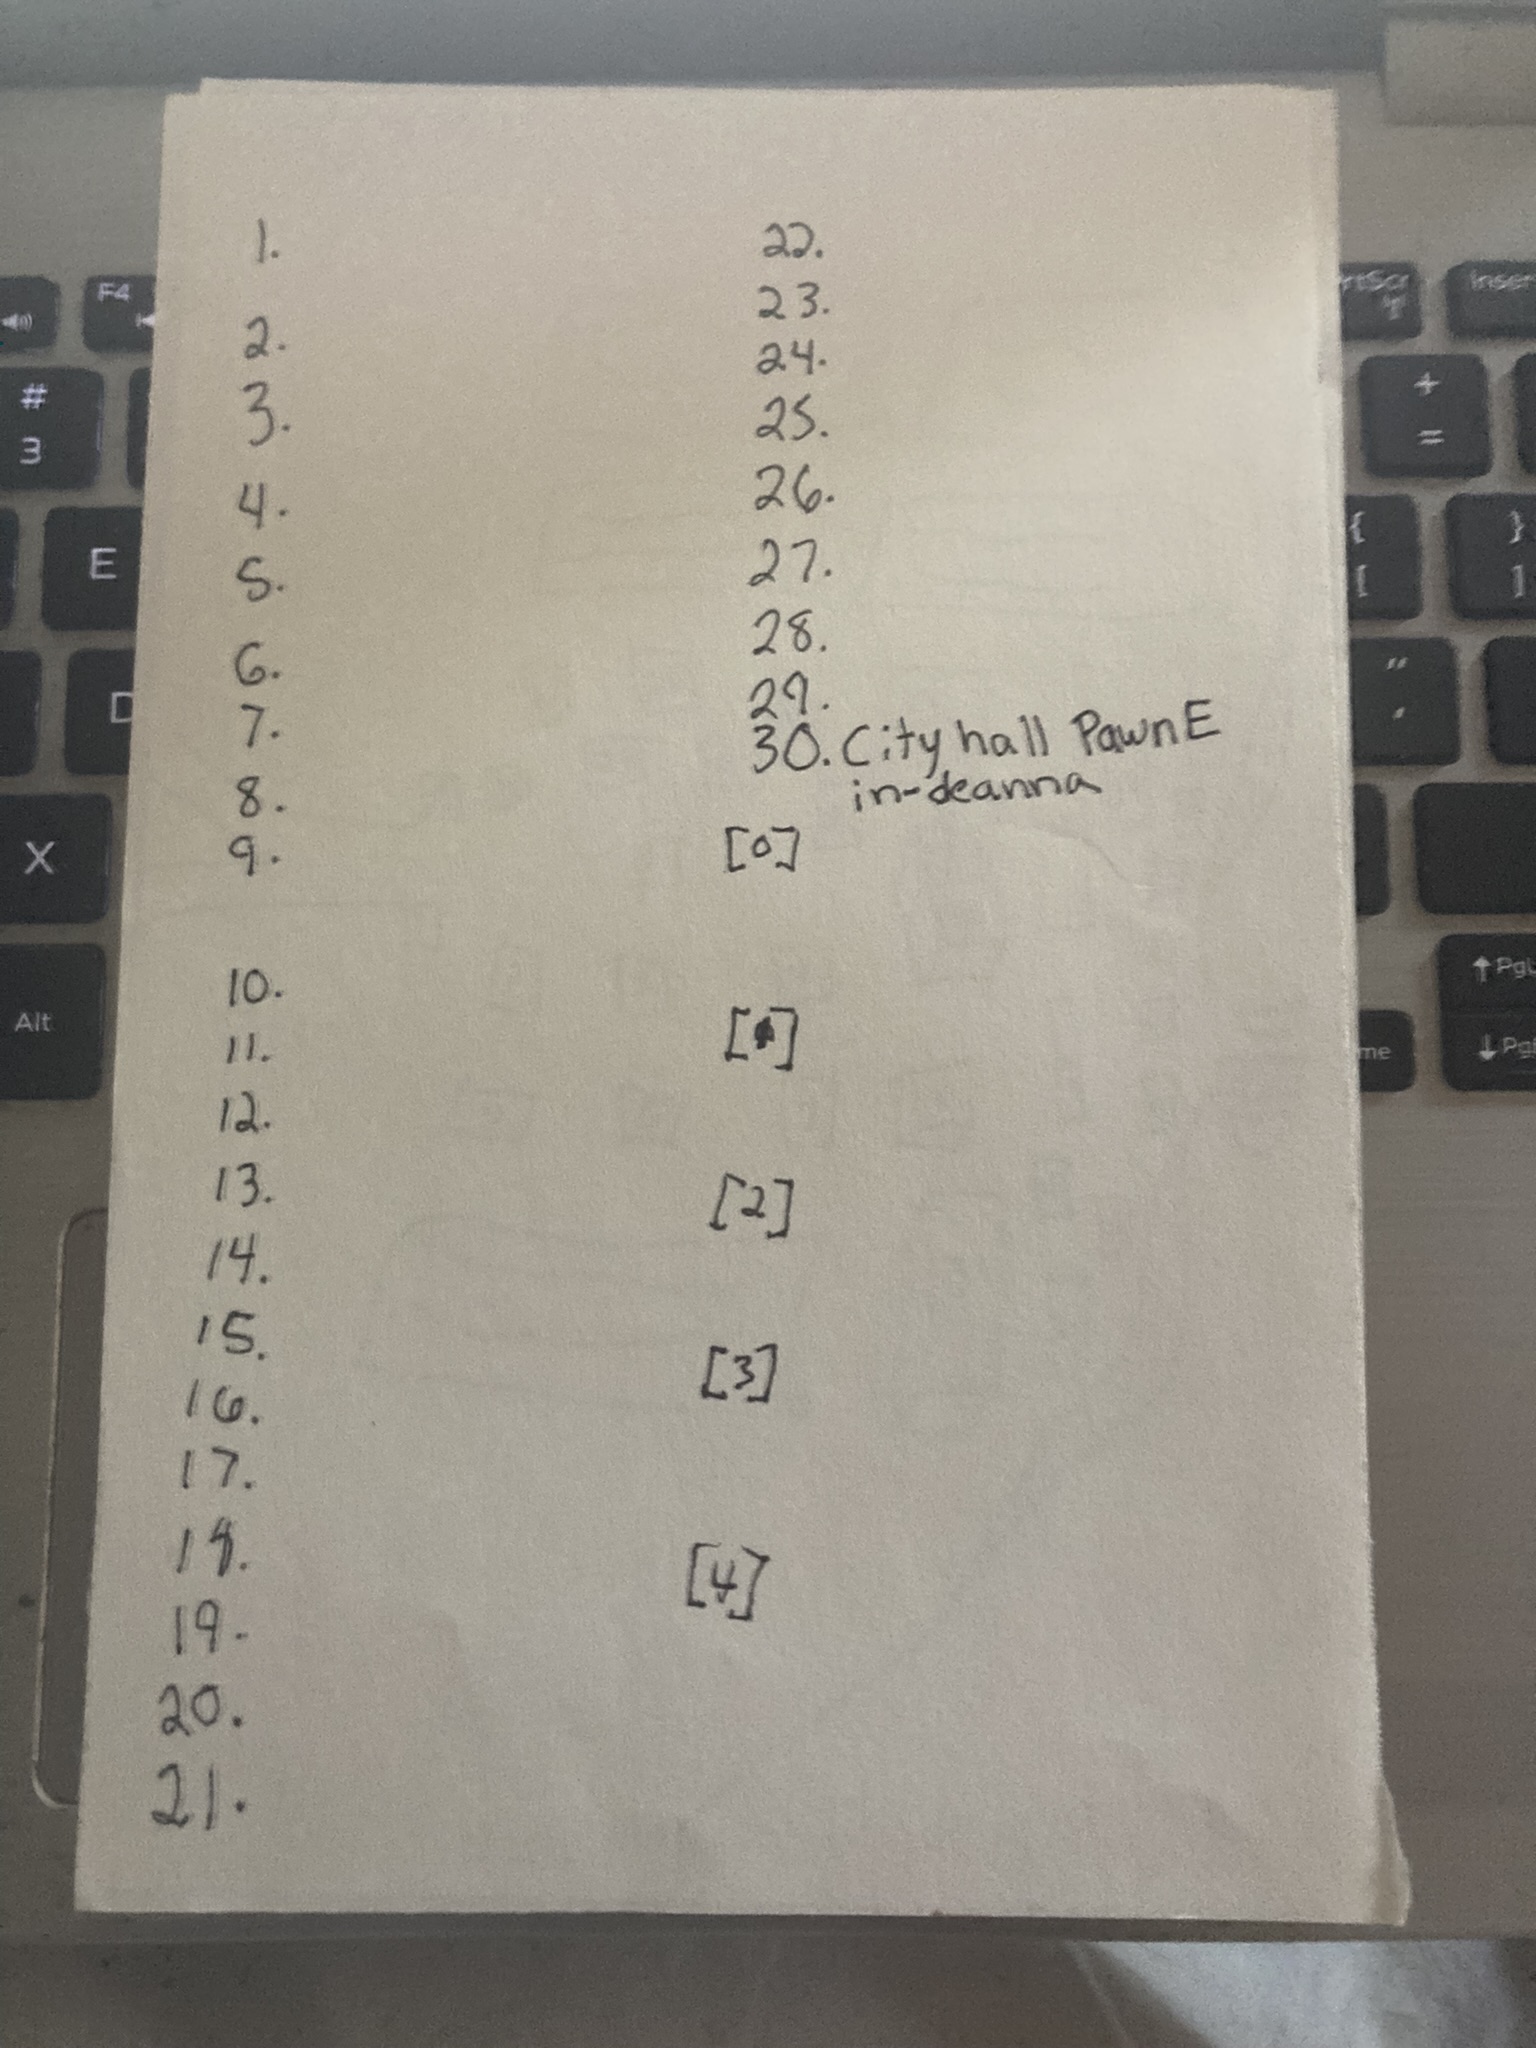 1.
2.
3.
4.
5.
6.
7.
8.
9.
10.
11.
12.
13.
14.
15.
16.
17.
18.
19.
20.
21.
22.
23.
24.
25.
26.
27.
28.
29.
30. City hall PawnE
in-deanna
[0]
[1]
[2]
[3]
[4]
F4
#
3
E
D
X
Alt
rtScr
Inser
+
=
{
[
}
]
"
'
me
↑ PgU
↓ Pg